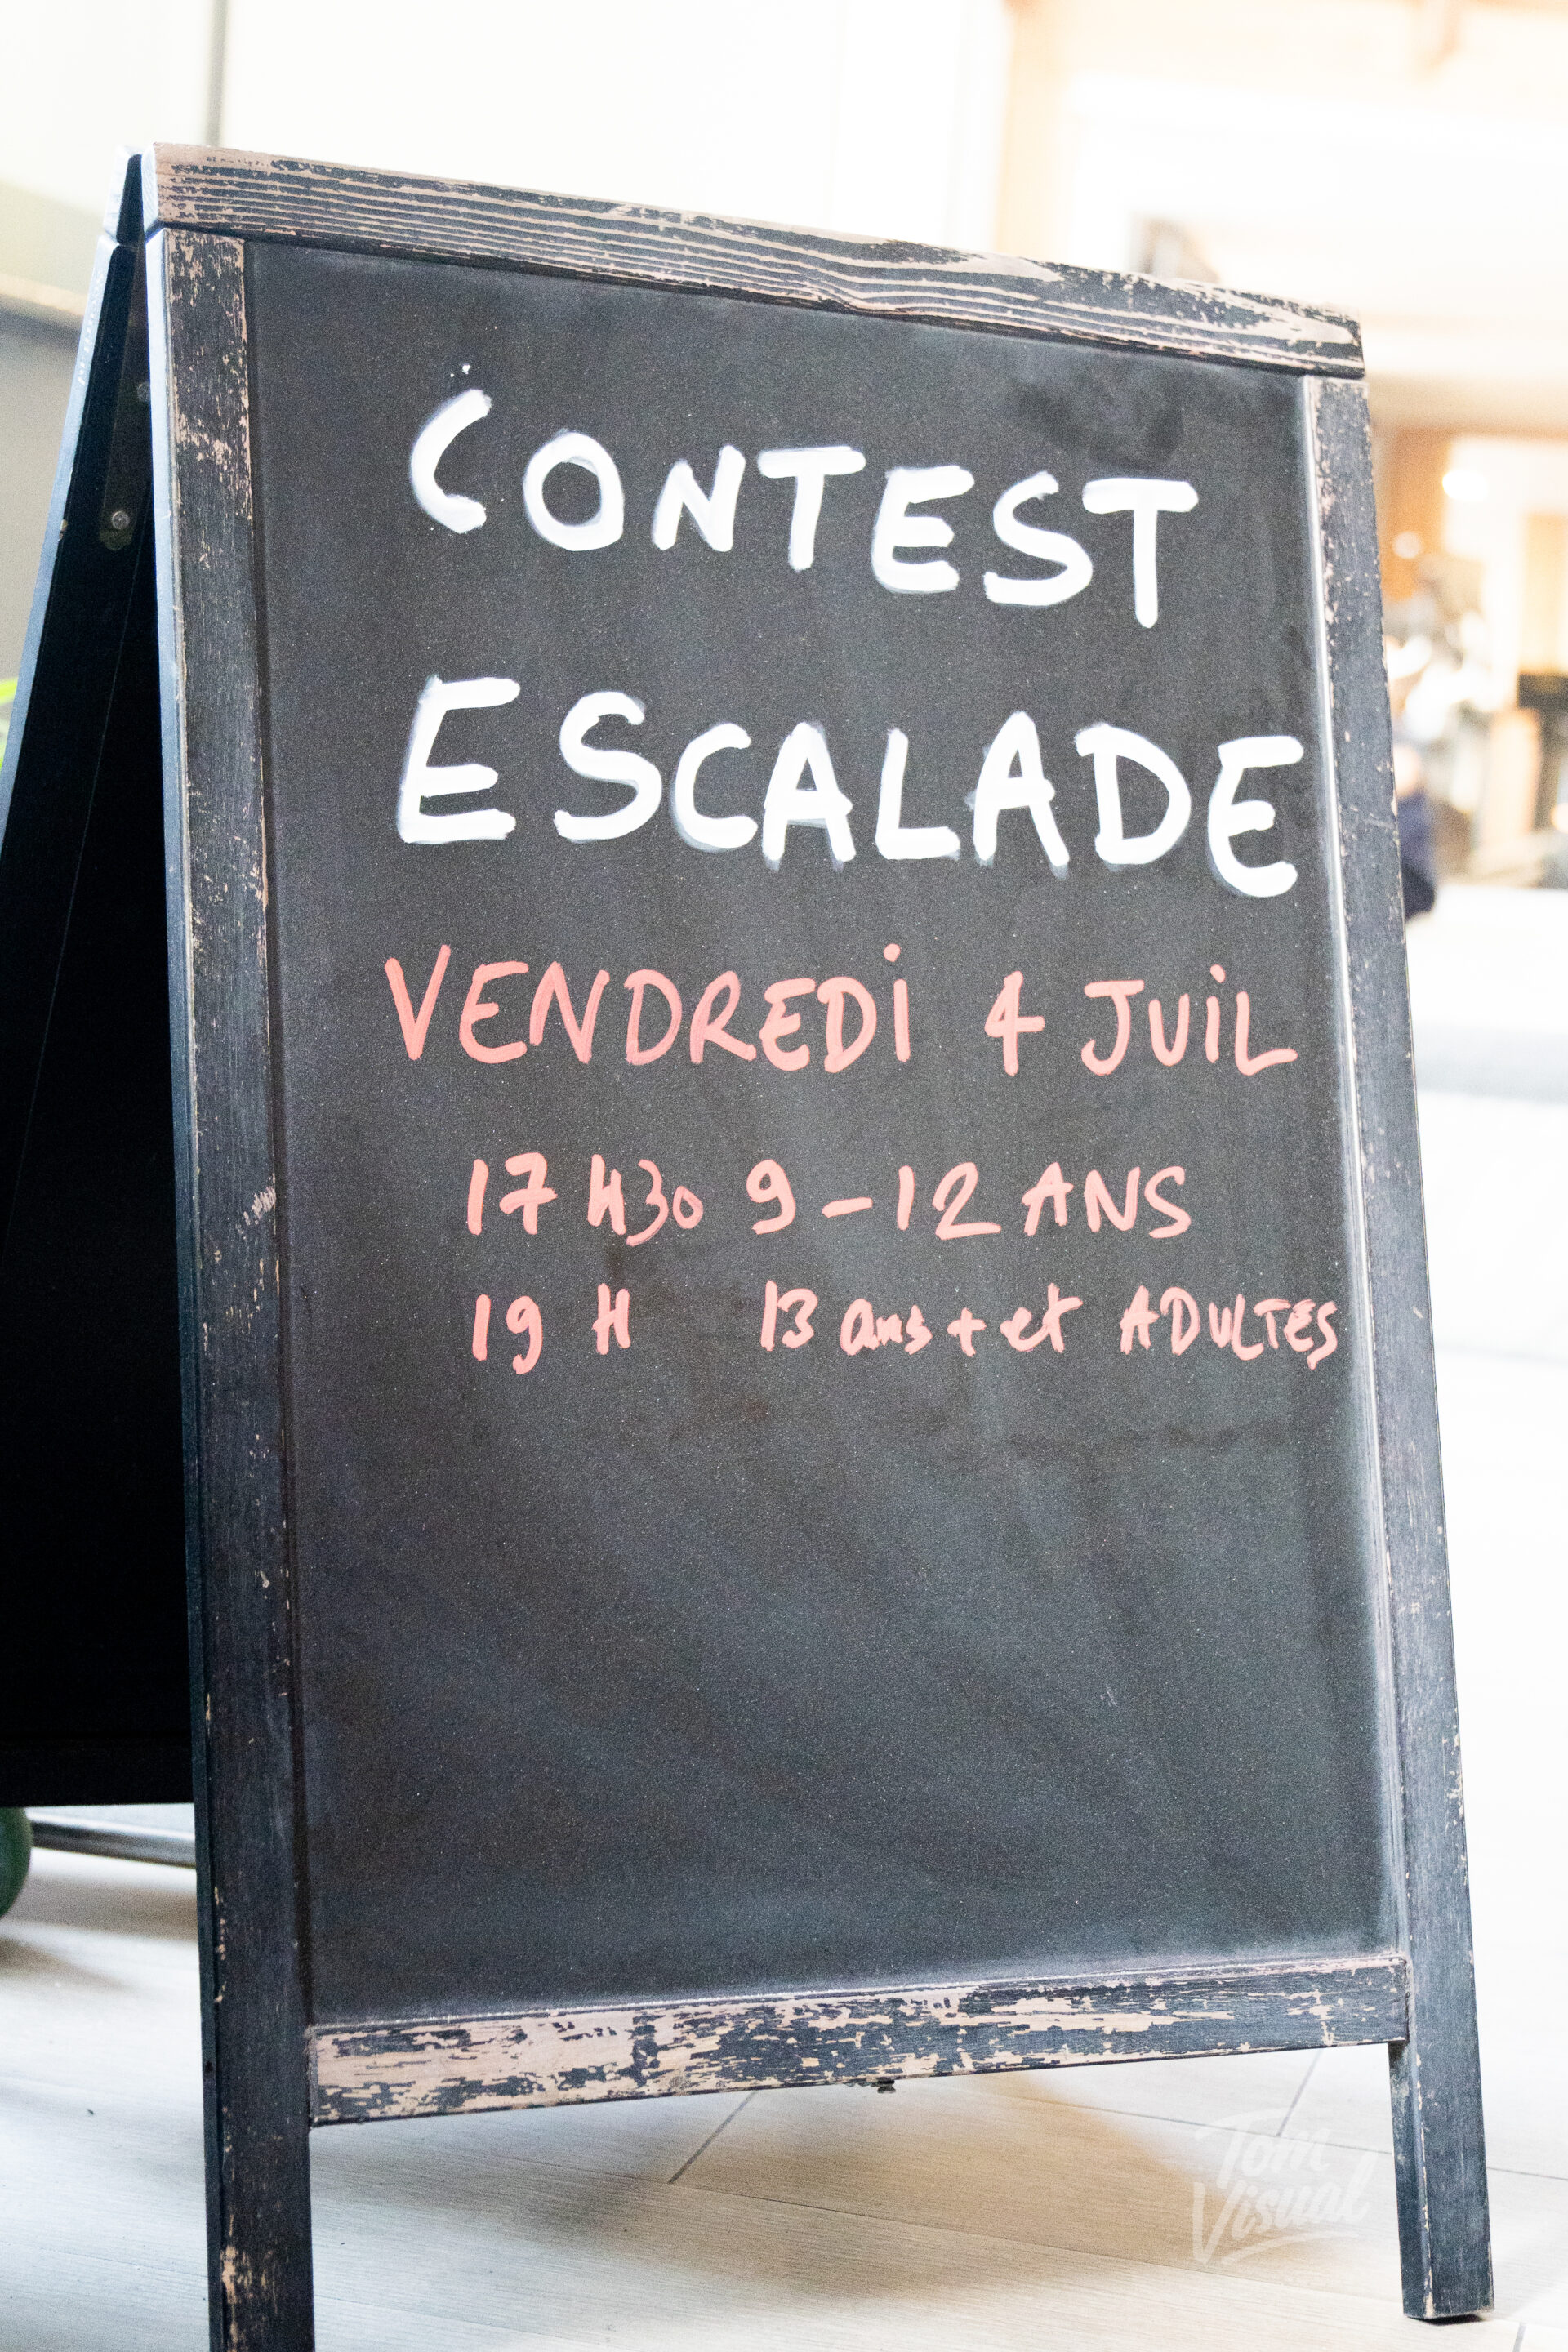 CONTEST
ESCALADE
VENDREDI 4 JUIL
17 H30 9-12 ANS
19 H 13 ans + et ADULTES
Tom
Visual